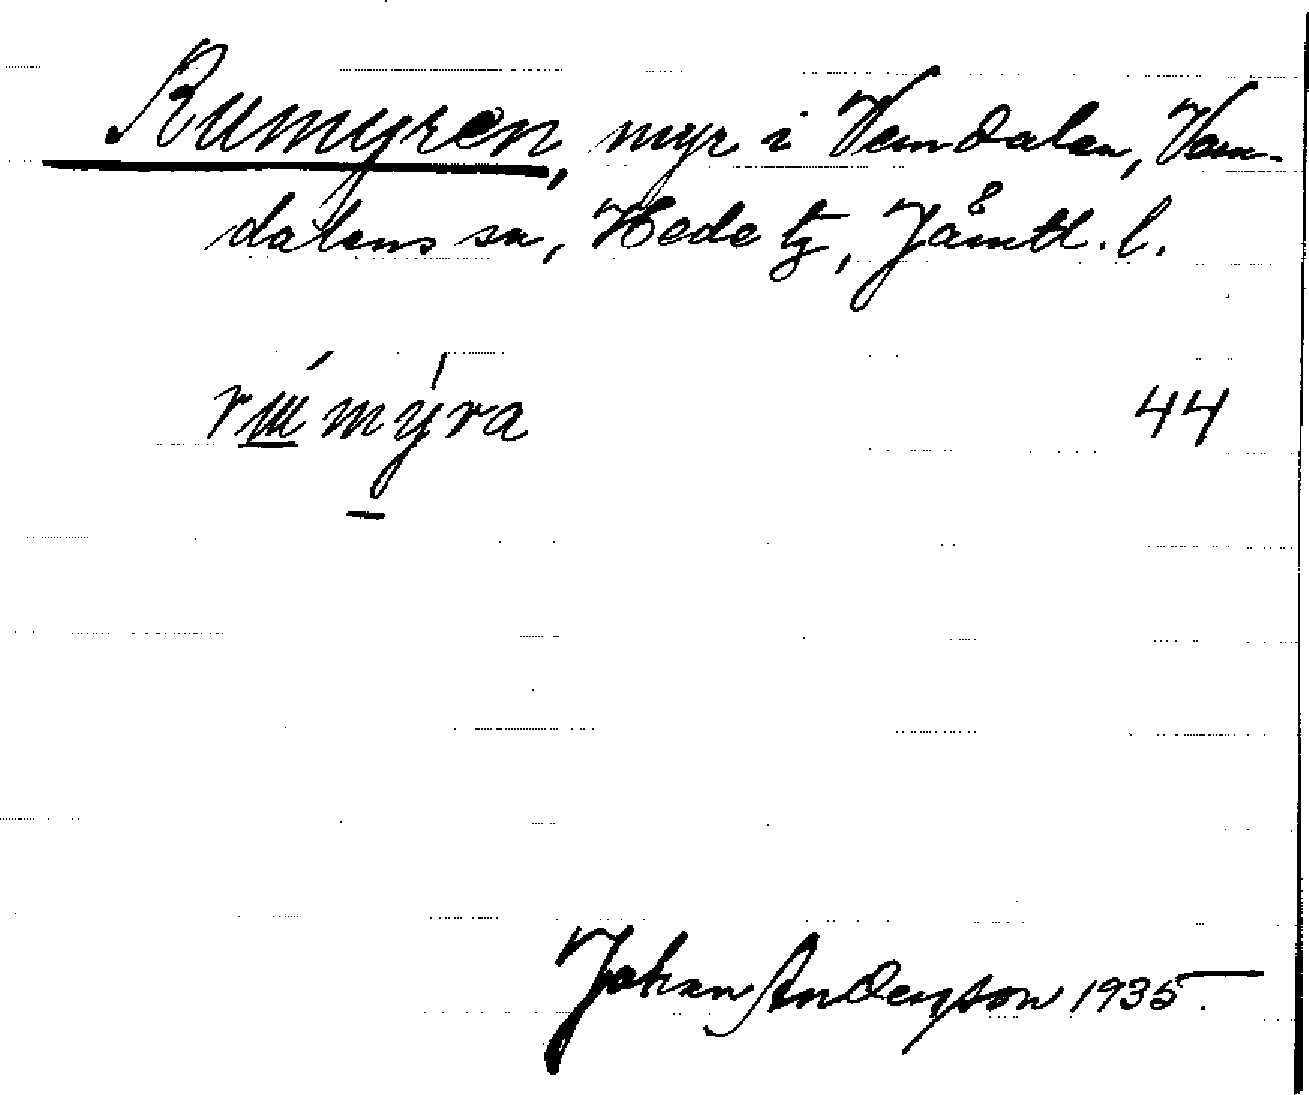 Rumyren, myr i Vemdalen, Vem-
dalens sn, Hede tg, Jämtl. l.
44
Johan Anderson 1935.